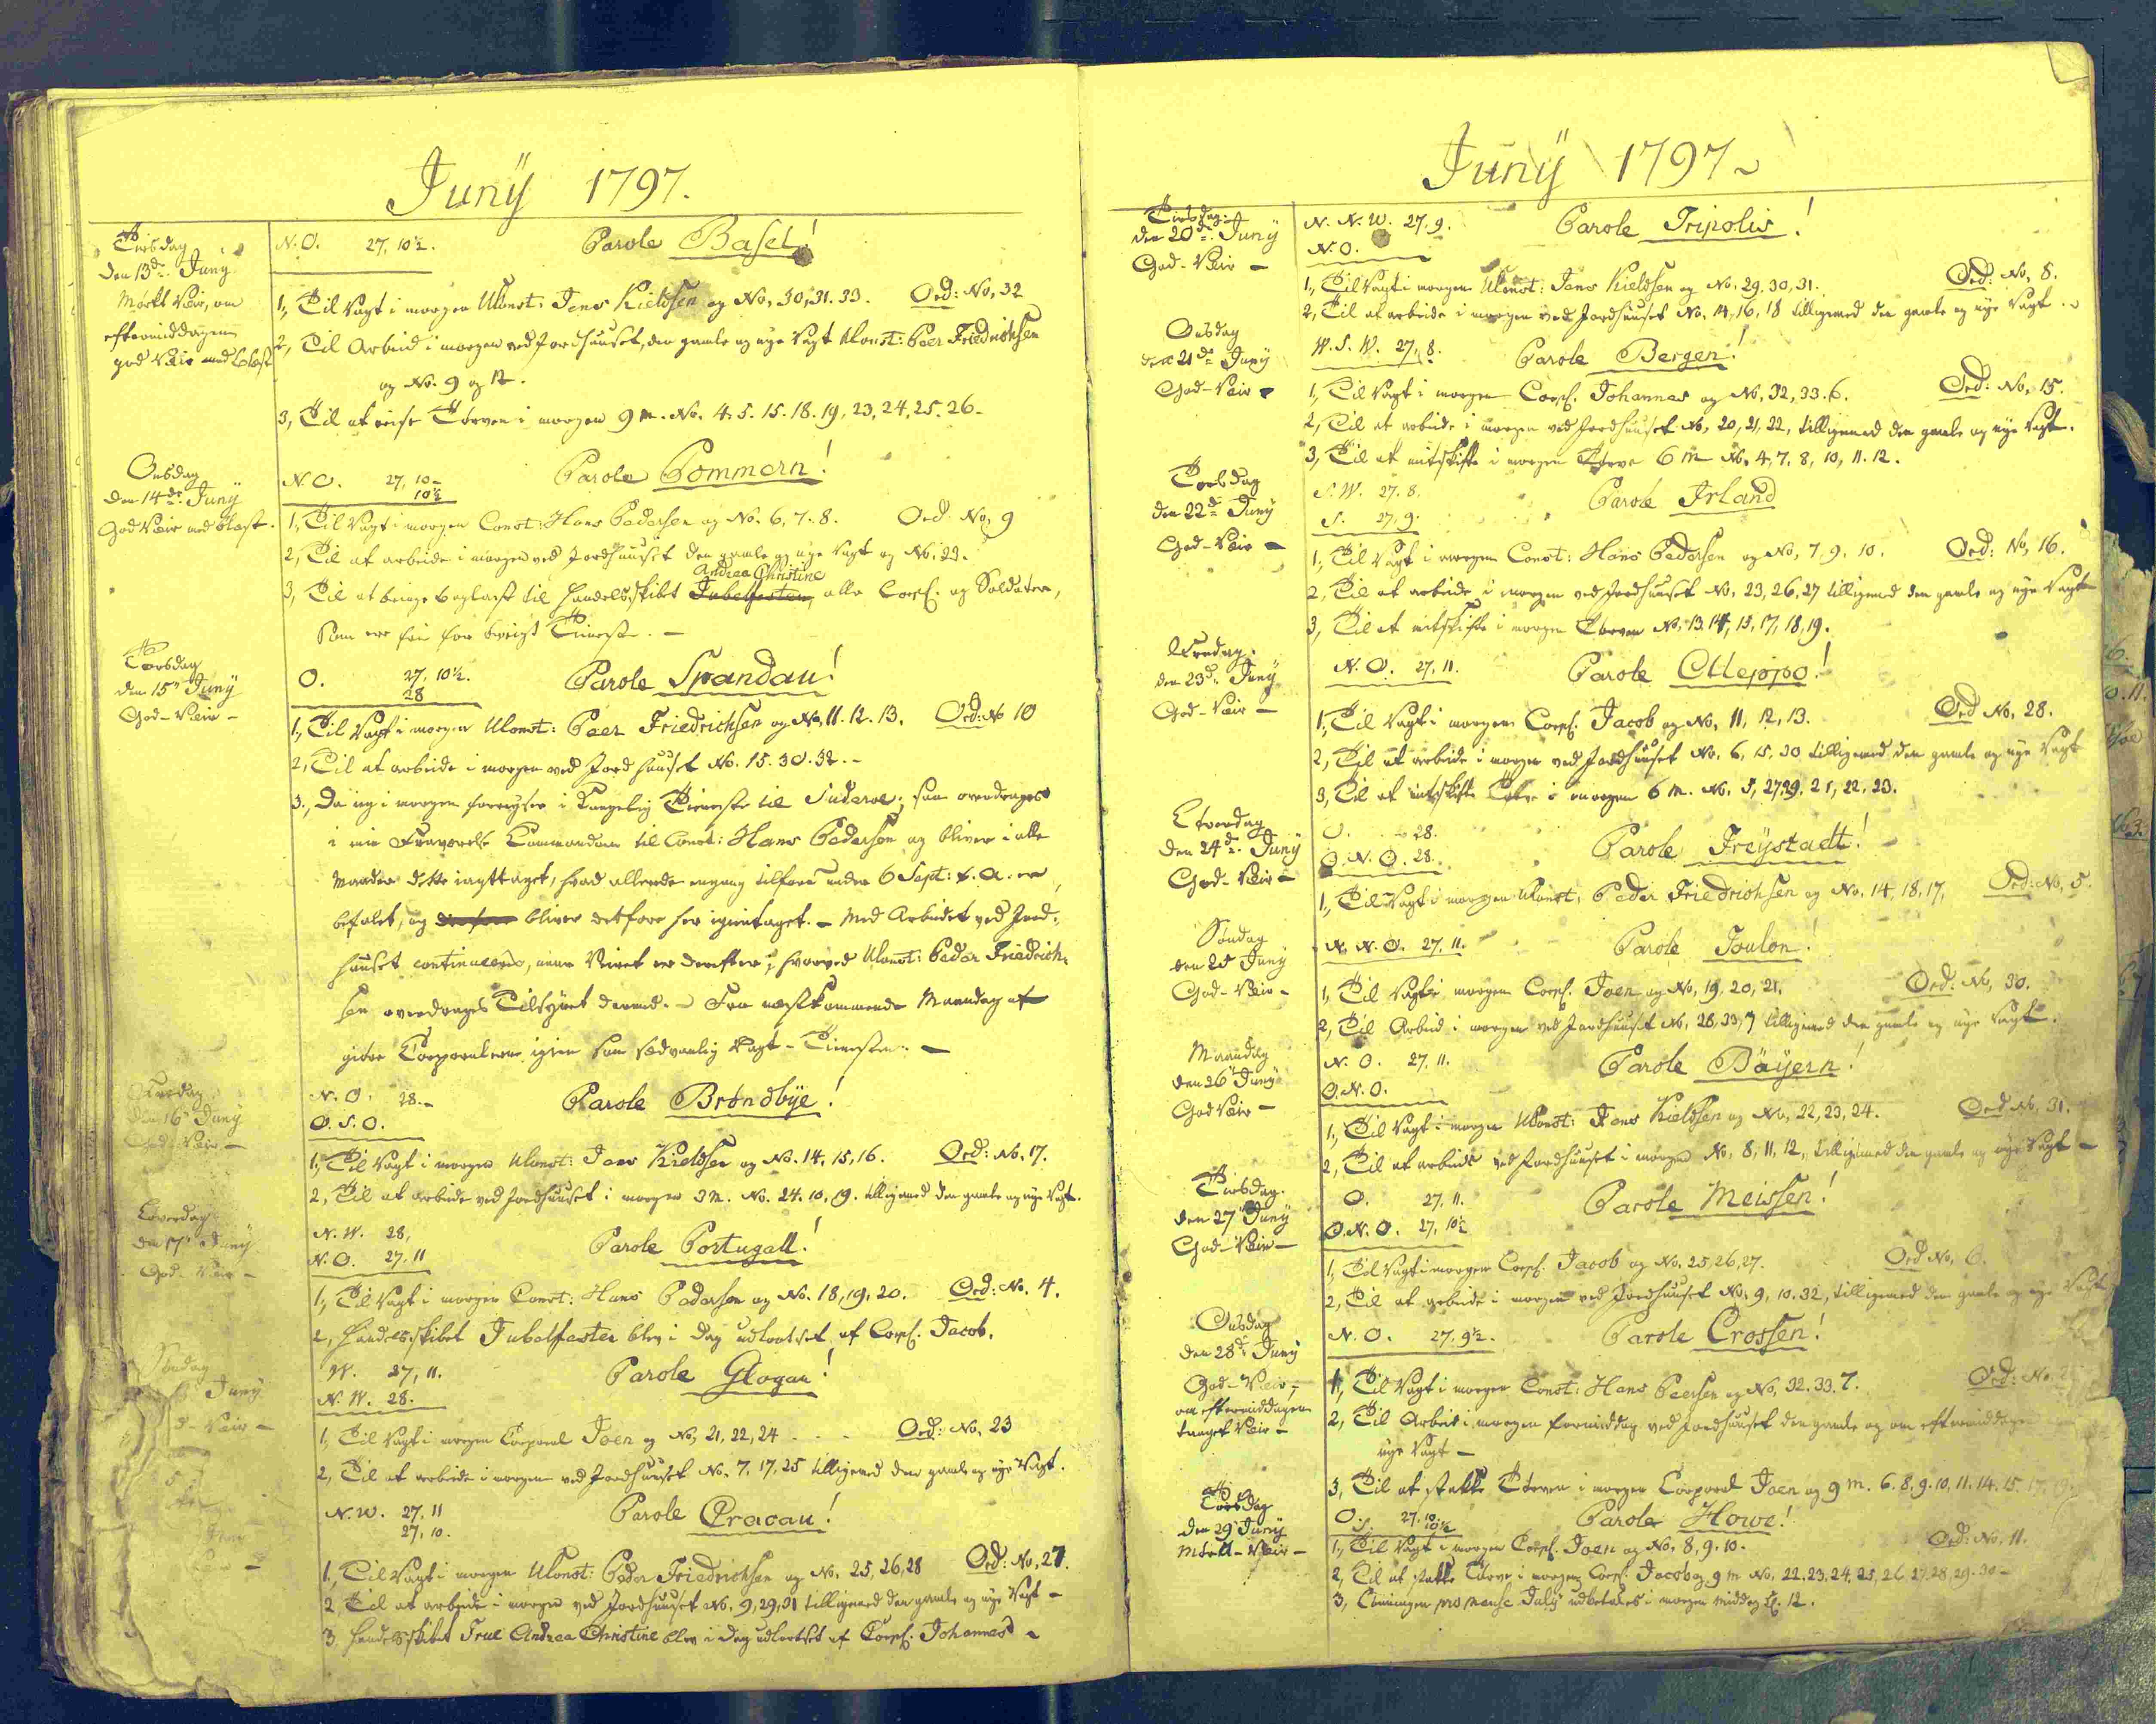 Junÿ 1797.
Tirsdag
den 13de Junÿ
Mørkt Veir, om
eftermiddagen
god Veir med blæst
N.O. 27, 10½.
Parole Basel!
1, Til Vagt i morgen Ukonst: Jens Kieldsen og No, 30, 31. 33. Ord: No, 32
2, Til Arbeid i morgen ved Jordhuuset, den gamle og nye Vagt Ukonst: Peer Friedrichsen
og No. 9 og 12.
3, Til at reise Tørven i morgen 9 m. No. 4. 5. 15. 18. 19, 23, 24, 25. 26-
Onsdag
den 14de Junÿ
God Veir med blæst.
N.O. 27, 10-
10½
Parole Pommern!
1, Til Vagt i morgen Const: Hans Pedersen og No. 6, 7. 8. Ord No, 9
2, Til at arbeide i morgen ved Jordhuuset den gamle og nye Vagt og No, 23.
Andrea Christine
3, Til at bringe baglast til Handelsskibet Jubelfesten, alle Corpl. og Soldater,
som ere frie for øvrigt Tieneste. -
Torsdag
den 15de Junÿ
God-Veir-
O. 27, 10½.
28
Parole Spandau!
1, Til Vagt i morgen Ukonst: Peer Friedrichsen og No, 11. 12. 13. Ord: No 10
2, Til at arbeide i morgen ved Jordhuuset No. 15. 30. 32. -
3, Da jeg i morgen forreyser i Kongelig Tieneste til Suderoe; saa overdrages
i min Fraværelse Commandoen til Const: Hans Pedersen og bliver i alle
Maader dette iagttaget, hvad allerede engang tilforn under 6 Sept: f. a. er
befalet, og bliver derfore her igientaget. - Med Arbeidet ved Jord-
huuset continueres, naar Veiret er derefter; hvorved Ukonst: Peder Friedrich-
sen overdrages Tilsynet dermed. - Fra næstkommende Mandag af
giøre Corporalerne igien sam sædvanlig Vagt-Tieneste. -
Fredag
den 16 Junÿ
God-Veir-
N.O. 28.-
O.S.O.
Parole Brøndbÿe!
1, Til Vagt i morgen Ukonst: Jens Kieldsen og No. 14, 15, 16. Ord: No, 17.
2, Til at arbeide ved Jordhuuset i morgen 3 m. No. 24. 10, 19. tilligemed den gamle og nye Vagt.
Løverdag
den 17 Junÿ
God-Veir-
N.W. 28,
N.O. 27, 11
Parole Portugall!
1, Til Vagt i morgen Const: Hans Pedersen og No. 18, 19, 20. Ord: No. 4.
2, Handelsskibet Jubelfesten blev i dag udlootset af Corpl. Jacob.
Søndag
Junÿ
W. 27, 11.
N.W. 28.
Parole Glogau!
1, Til Vagt i morgen Corporal Joen og No, 21, 22, 24 Ord: No, 23
2, Til at arbeide i morgen ved Jordhuuset No. 7, 17, 25 tilligemed den gamle og nye Vagt.
N.W. 27, 11
27, 10.
Parole Cracau!
1, Til Vagt i morgen Ukonst: Peder Friedrichsen og No. 25, 26, 28 Ord: No, 27.
2, Til at arbeide i morgen ved Jordhuuset No. 9, 29, 31 tilligemed den gamle og nye Vagt -
3. Handelsskibet Frue Andrea Christine blev i dag udlootset af Corpl. Johannes -
Junÿ 1797
Tirsdag:
den 20de Junÿ
God-Veir -
N.N.W. 27, 9.
N.O.
Parole Tripolis!
1, Til Vagt i morgen Ukonst: Jens Kieldsen og No, 29, 30, 31. Ord: No, 8.
2, Til at arbeide i morgen ved Jordhuuset No. 14, 16, 18 tilligemed den gamle og nye Vagt.
Onsdag
den 21de Junÿ
God-Veir -
W.S.W. 27, 8.
Parole Bergen!
1, Til Vagt i morgen Corpl. Johannes og No, 32, 33. 6. Ord: No, 15.
2, Til at arbeide i morgen ved Jordhuuset No, 20, 21, 22, tilligemed den gamle og nye Vagt.
3, Til at i morgen Tørve 6 m No, 4, 7, 8, 10, 11. 12.
Torsdag
den 22de Junÿ
God-Veir -
S.W. 27. 8.
S. 27, 9.
Parole Irland
1, Til Vagt i morgen Const: Hans Pedersen og No, 7, 9, 10. Ord: No, 16.
2, Til at arbeide i morgen ved Jordhuuset No, 23, 26, 27 tilligemed den gamle og nye Vagt
3, Til at i morgen Tørven No, 13, 14, 15, 17, 18, 19.
Fredag.
den 23de Junÿ
God-Veir -
N.O. 27, 11.
Parole Alleppo!
1, Til Vagt i morgen Corpl. Jacob og No, 11, 12, 13. Ord No, 28.
2, Til at arbeide i morgen ved Jordhuuset No. 6, 15. 30 tilligemed den gamle og nye Vagt
3, Til at i morgen 6 m. No. 5, 27, 29, 21, 22, 23.
Løverdag
den 24de Junÿ
God-Veir -
O. 28.
O.N.O. 28.
Parole Freÿstadt!
1, Til Vagt i morgen Ukonst, Peder Friedrichsen og No. 14, 18, 17, Ord: No, 5.
Søndag
den 25 Junÿ
God-Veir -
N.N.O. 27, 11.
Parole Toulon!
1, Til Vagt i morgen Corpl. Joen og No, 19, 20, 21. Ord: No, 30.
2, Til Arbeid i morgen ved Jordhuuset No, 28, 33, 7 tilligemed den gamle og nye Vagt.
Maandag
den 26 Junÿ
God Veir -
N.O. 27, 11.
O.N.O.
Parole Bäÿern!
1, Til Vagt i morgen Ukonst: Jens Kieldsen og No, 22, 23, 24. Ord No, 31.
2, Til at arbeide ved Jordhuuset i morgen No, 8, 11, 12, tilligemed den gamle og nye Vagt -
Tirsdag.
den 27 Junÿ
God-Veir-
O. 27, 11.
O.N.O. 27, 10½
Parole Meissen!
1, Til Vagt i morgen Corpl. Jacob og No, 25, 26, 27. Ord No, 6.
2, Til at arbeide i morgen ved Jordhuuset No, 9, 10. 32, tilligemed den gamle og nye Vagt
Onsdag
den 28de Junÿ
God-Veir,
om eftermiddagen
taaget Veir-
N.O. 27. 9½.
Parole Crossen!
1, Til Vagt i morgen Const: Hans Peersen og No, 32. 33. 7. Ord: No
2, Til Arbeit i morgen formiddag ved Jordhuuset den gamle og om eftermiddagen
nye Vagt -
3, Til at stakke Tørven i morgen Corporal Joen og 9 m. 6. 8. 9. 10, 11. 14. 15. 17.
Torsdag
den 29 Junÿ
Veir -
O.S. 27, 10.
10½
Parole Howe!
1, Til Vagt i morgen Corpl. Joen og No, 8, 9. 10. Ord: No. 11.
2, Til at stakke Tørve i morgen Corpl. Jacob og 9 m No, 22, 23, 24, 25, 26, 27, 28, 29. 30 -
3, pro Mense Julÿ udbetales i morgen middag Kl. 12.